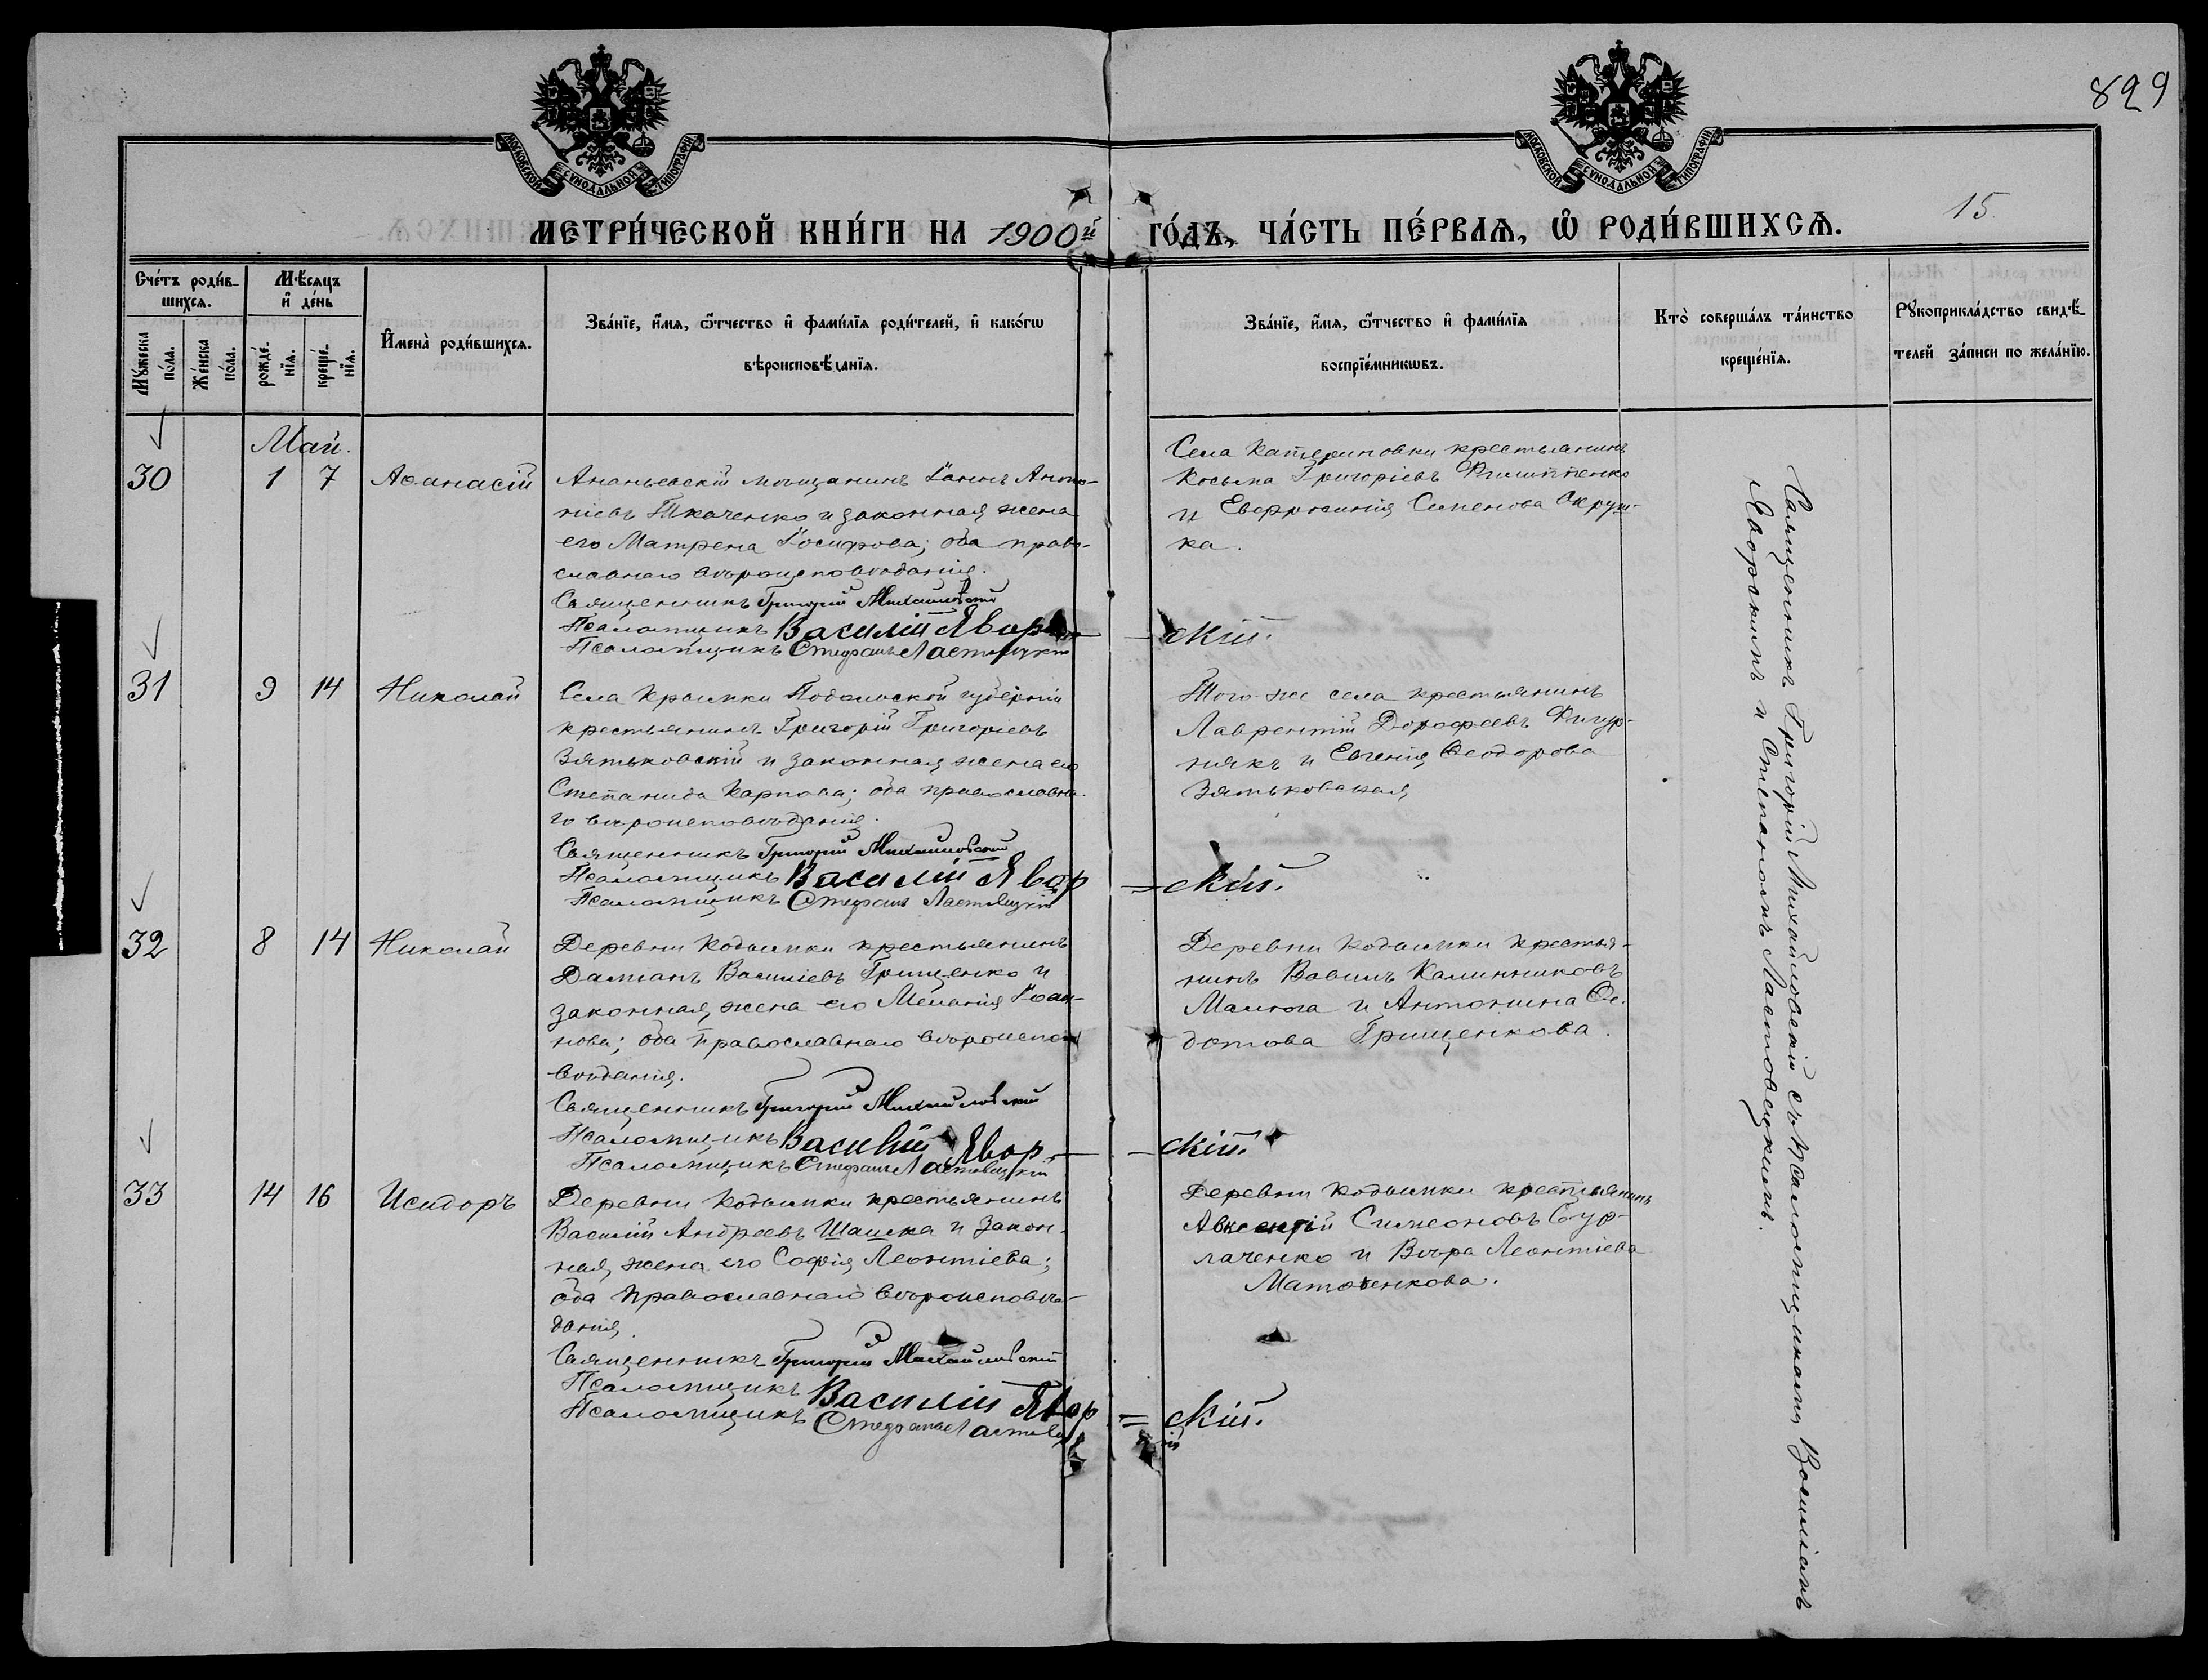 829
МОСКОВСКОЙ СѴНОДАЛЬНОЙ ТИПОГРАФІИ
МОСКОВСКОЙ СѴНОДАЛЬНОЙ ТИПОГРАФІИ
15
МЕТРИ́ЧЕСКОЙ КНИ́ГИ НА 1900й ГО́ДЪ, ЧА́СТЬ ПЕ́РВАѦ, Ѡ҆ РОДИ́ВШИХСѦ.
Сче́тъ роди́в-
шихсѧ.
Мꙋ́жеска по́ла.
Же́нска по́ла.
Мѣ́сѧцъ
и҆ де́нь
рожде́-
нїѧ.
креще́-
нїѧ.
И҆мена̀ роди́вшихсѧ.
Зва́нїе, и҆́мѧ, ѻ҆́тчество и҆ фами́лїѧ роди́телей, и҆ како́гѡ
вѣроисповѣ́данїѧ.
Зва́нїе, и҆́мѧ, ѻ҆́тчество и҆ фами́лїѧ
воспрїе́мникѡвъ.
Кто̀ соверша́лъ та́инство
креще́нїѧ.
Рꙋкоприкла́дство свидѣ́-
телей за́писи по жела́нїю.
Май.
30 1 7 Аѳанасій
Ананьевскій мѣщанинъ Іоаннъ Антоніевъ Ткаченко и законная жена
его Матрена Іосифова; оба право-
славнаго вѣроисповѣданія.
Священникъ Григорій Михайловскій
Псаломщикъ Василій Яворскій.
Псаломщикъ Стефанъ Ластовецкій
Села Катериновки крестьянинъ
Косьма Григоріевъ Филиппенко
и Евфросинія Симеонова Окруш-
ка.
31 9 14 Николай
Села Крымки Подольской губерніи
крестьянинъ Григорій Григоріевъ
Зятьковскій и законная жена его
Степанида Карпова; оба православна-
го вѣроисповѣданія.
Священникъ Григорій Михайловскій
Псаломщикъ Василій Явор=скій.
Псаломщикъ Стефанъ Ластовецкій
Того же села крестьянинъ
Лаврентій Дорофеевъ Фигур-
някъ и Евгенія Ѳеодорова
Зятьковская
32 8 14 Николай
Деревни Кодымки крестьянинъ
Даміанъ Василіевъ Грищенко и
законная жена его Меланія Іоан-
нова; оба православнаго вѣроиспо-
вѣданія.
Священникъ Григорій Михайловскій
Псаломщикъ Василій Явор-скій.
Псаломщикъ Стефанъ Ластовецкій
Деревни Кодымки крестья-
нинъ Вавилъ Калинниковъ
Малюга и Антонина Ѳе-
дотова Грищенкова.
33 14 16 Исидоръ
Деревни Кодымки крестьянинъ
Василій Андреевъ Шашка и закон-
ная жена его Софія Леонтіева;
оба православнаго вѣроисповѣ-
данія.
Священникъ Григорій Михайловскій
Псаломщикъ Василій Явор=скій.
Псаломщикъ Стефанъ Ластовецкій
Деревни Кодымки крестьянинъ
Авксентій Симеоновъ Бур-
лаченко и Вѣра Леонтіева
Матвѣенкова.
Священникъ Григорій Михайловскій съ псаломщиками Василіемъ
Яворскимъ и Стефаномъ Ластовецкимъ.